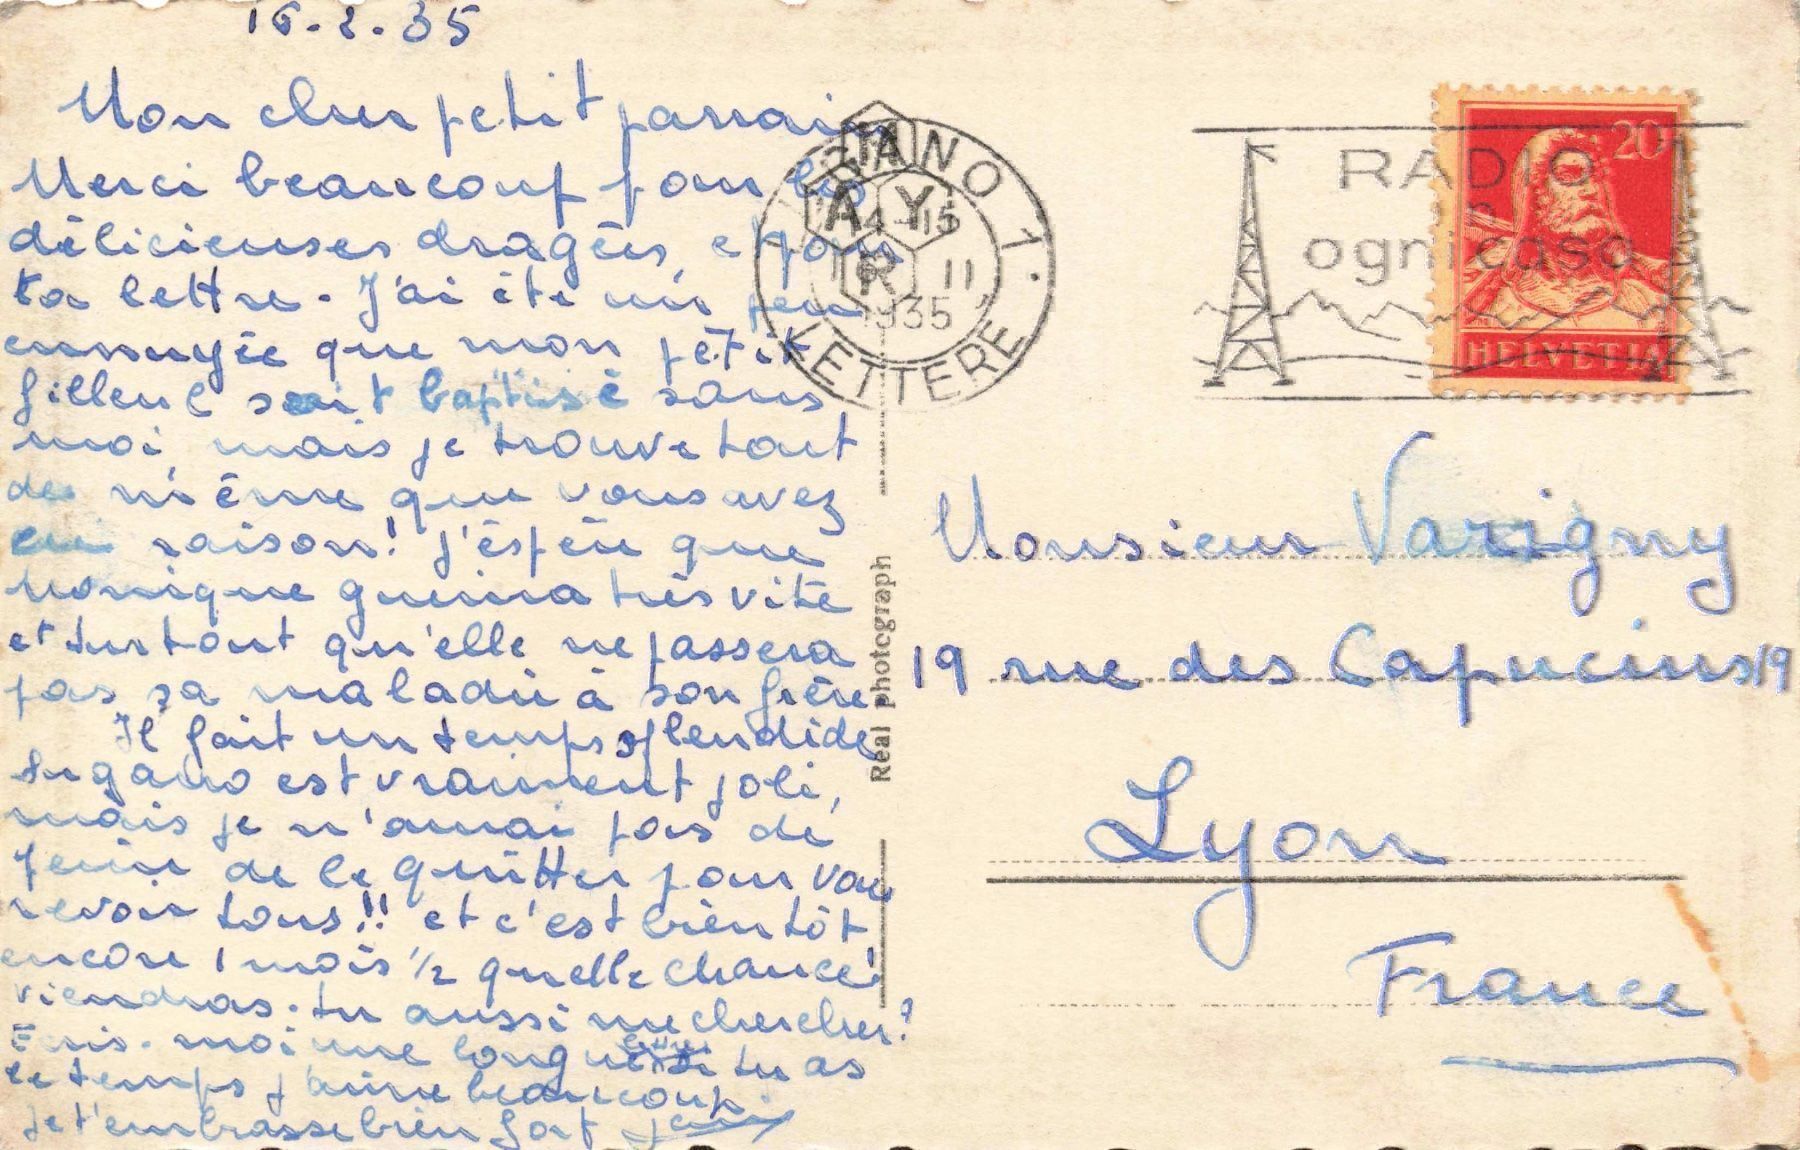 16.2.35
Mon cher petit parrain
Merci beaucoup pour les
délicieuses dragées, et pour
ta lettre. J'ai été un peu
ennuyée que mon petit
filleul soit baptisé sans
moi, mais je trouve tout
de même que vous avez
eu raison! J'éspère que
Monique guérira très vite
et surtout qu'elle ne passera
pas sa maladie à son frère
Il fait un temps splendide
Lugano est vraiment joli,
mais je n'aurai pas de
peine de le quitter pour vous
revoir tous!! et c'est bientôt
encore 1 mois 1/2 quelle chance!
viendras-tu aussi me chercher?
Écris-moi une longue lettre si tu as
le temps j'aime beaucoup
je t'embrasse bien fort
LUGANO 1.
14-15
II
1935
LETTERE
AYR
RADIO
in
ogni casa
20
HELVETIA
Real photograph
Monsieur Varigny
19 rue des Capucins 19
Lyon
France